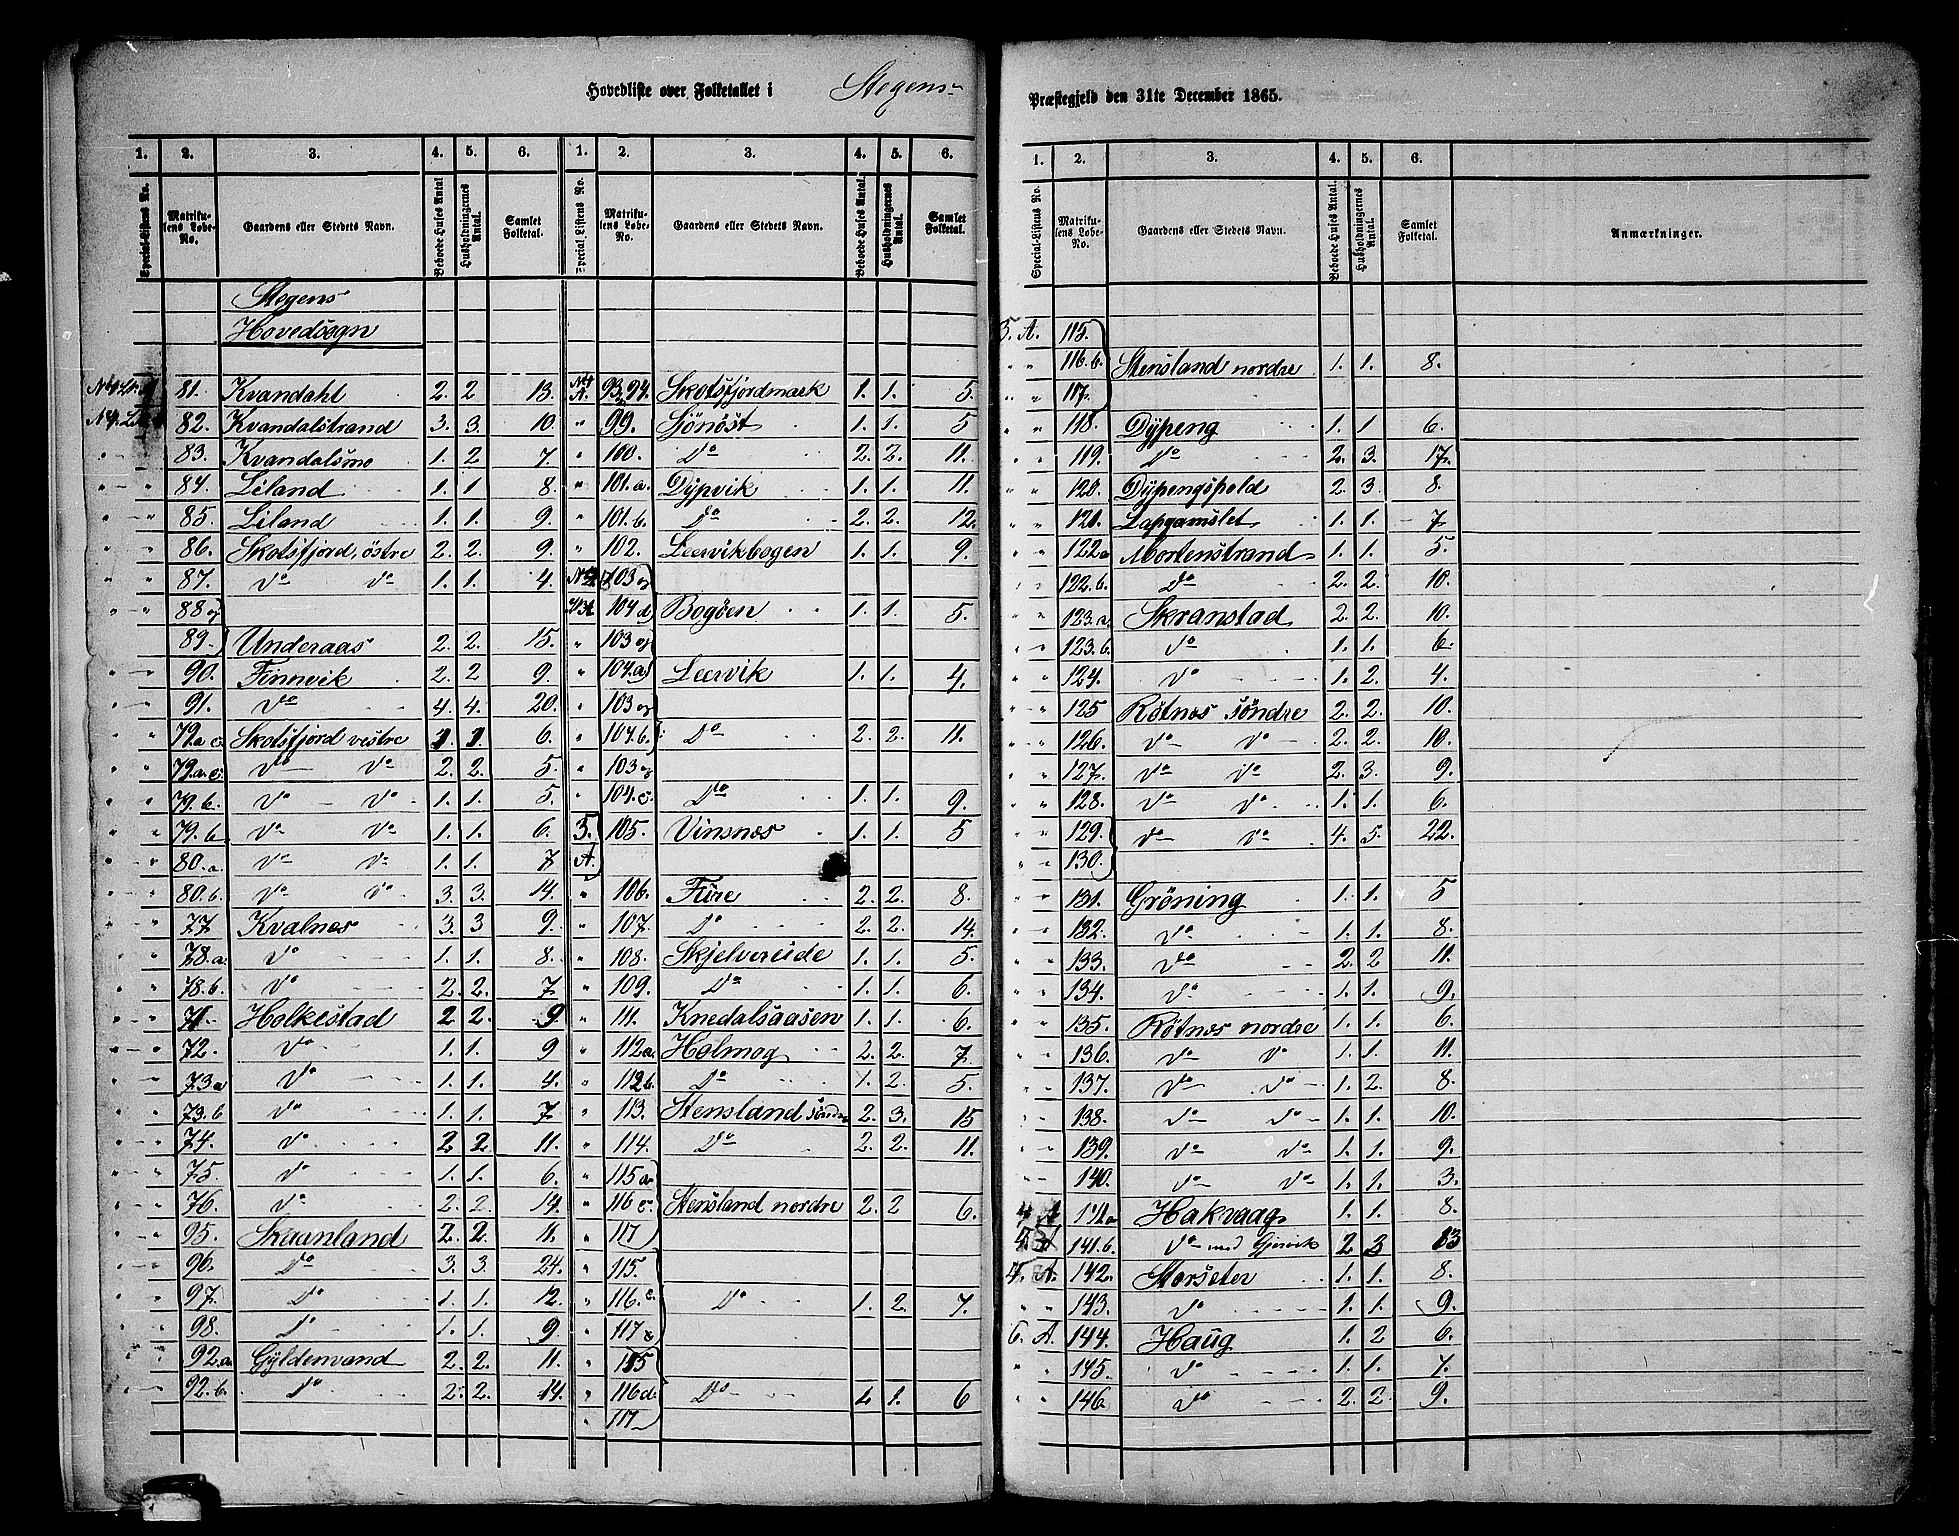 Hovedliste over Folketallet i Stegens
Præstegjeld den 31te December 1865.
1. 2. 3. 4. 5. 6. 1. 2. 3. 4. 5. 6.
Special-Listens No. Matrikulens Løbe-No. Gaardens eller Stedets Navn. Beboede Huses Antal Husholdningernes Antal. Samlet Folketal. Special-Listens No. Matrikulens Løbe-No. Gaardens eller Stedets Navn. Beboede Huses Antal. Husholdningernes Antal. Samlet Folketal.
Stegens
Hovedsogn
81. Kvandahl 2. 2. 13.
82. Kvandalstrand 3. 3. 10.
83. Kvandalsmo 1. 2. 7.
84. Liland 1. 1. 8.
85. Liland 1. 1. 9.
86. Skotsfjord, östre 2. 2. 9.
87. Do Do 1. 1. 4.
88 og
89. Underaas 2. 2. 15.
90. Finnvik 2. 2 9.
91. Do 4. 4. 20.
79.a Skotsfjord vestre 1. 1. 6.
79.a.c. Do Do 2. 2. 5.
79.b. Do Do 1. 1. 5.
79.b Do Do 1. 1. 6.
80.a. Do Do 1. 1. 7
80.b. Do Do 3. 3. 14.
77 Kvalnes 3. 3 9.
78.a. Do 1. 1. 8.
78.b. Do 2. 2. 7
71. Holkestad 2 2. 9
72. Do 1. 1. 9
73a Do 1. 1. 4.
73.b Do 1. 1. 7
74. Do 2 2. 11.
75. Do 1. 1. 6.
76. Do 2. 2. 14.
95. Skaanland 2. 2. 11.
96. Do 3. 3. 24.
97. Do 1. 1. 12.
98. Do 1. 1. 9
92.a. Gyldenvand 2. 2. 11.
92.b. Do 2. 2. 14.
93,94. Skotsfjordmark 1. 1. 5.
99. Sjönöst 1. 1. 5
100. Do 2. 2. 11.
101.a. Dypvik 1. 1. 11.
101.b. Do 2. 2. 12.
102. Leervikbogen 1. 1. 9.
103 og
104 d Bogöen 1. 1. 5.
103 og
104.a Leervik 1. 1. 4.
103 og
104.b. Do 2. 2. 11.
103 og
104.c. Do 1. 1. 9.
5. A. 105. Vinsnes 1. 1. 5
106. Füre 2. 2. 8.
107. Do 2. 2. 14.
108. Skjelvereide 1. 1. 5.
109. Do 1. 1. 6.
111. Knedalsaasen 1. 1. 6.
112a. Holmog 2. 2. 7.
112b. Do 1. 2. 5.
113. Stensland söndre 2. 3. 15
114. Do 2. 2. 11.
115
116 c. Stensland nordre 2. 2 6.
117
115.
116. Do 1. 2. 7.
117
115
116d. Do 1. 6
117
1. 2. 3. 4. 5. 6.
Special-Listens No. Matrikulens Løbe-No. Gaardens eller Stedets Navn. Beboede Huses Antal. Husholdningernes Antal. Samlet Folketal. Anmærkninger.
5. A. 115.
116.b Stensland nordre 1. 1. 8.
117.
118. Dypeng 1. 1 6.
119. Do 2. 3. 17.
120. Dypengshold 2. 3. 8.
121. Lapgamslet 1. 1. 7.
122a Mortenstrand 1. 1. 5.
122.b. Do 2. 2. 10.
123.a. Skranstad 2. 2. 10.
123.b. Do 1. 1. 6.
124. Do 1. 2. 4.
125 Rötnes söndre 2. 2. 10.
126. Do Do 2. 2. 10.
127. Do Do 2. 3. 9.
128. Do Do 1. 1. 6.
129. Do Do 4. 5. 22.
130.
131. Gröning 1. 1. 5
132. Do 1. 1. 8.
133. Do 2. 2 11.
134. Do 1. 1. 9.
135. Rötnes nordre 1. 1. 6.
136. Do Do 1. 1. 11.
137. Do Do 1. 2. 8.
138. Do Do 1. 1. 10.
139. Do Do 1. 1. 9.
140. Do Do 1. 1. 3.
4 A 141a Hakvaag 1. 1. 8.
141.b. Do med Gjervik 2 3 13
4. A. 142. Storseter 1. 1. 8.
143. Do 1. 1. 9.
6. A. 144. Haug 1. 2 6.
145. Do 1. 1. 7.
146. Do 2. 2. 9.